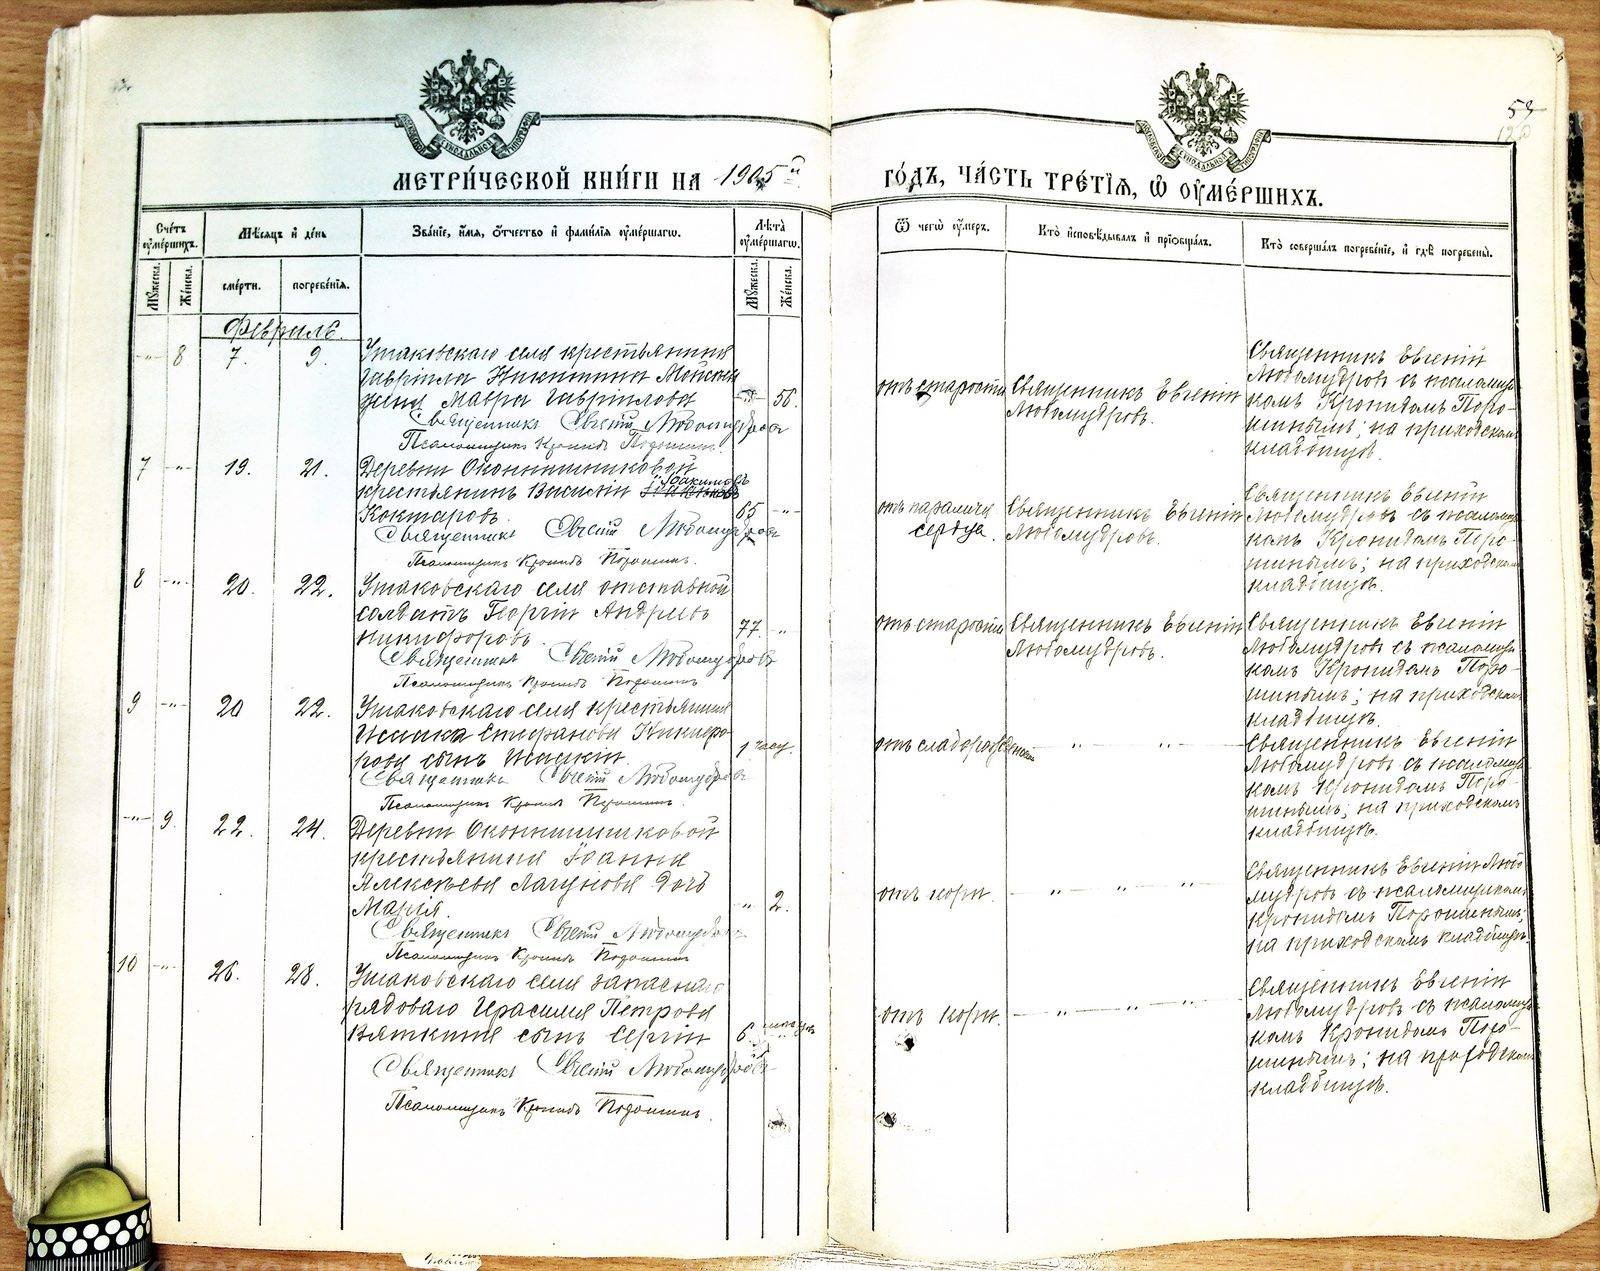 МЕТРИЧЕСКОЙ КНИГИ НА 1905 й
ГОДЪ, ЧАСТЬ ТРЕТІЯ, Ѿ ОУМЕРШИХЪ.
Счетъ оумершихъ.
Мѣсяцъ и день
Званіе, имя, отчество и фамилія оумершагѡ.
Лѣта оумершагѡ.
Ѿ чегѡ оумеръ.
Кто исповѣдывалъ и пріобщалъ.
Кто совершалъ погребеніе, и гдѣ погребены.
Мужеска.
Женска.
смерти.
погребенія.
Мужеска.
Женска.
Февраль.
8 7. 9.
Ушаковскаго села крестьянина
Гавріила Никитина
жена Мавра Гаврилова
56.
отъ старости
Священникъ Евгеній
Любомудровъ.
Священникъ Евгеній
Любомудровъ съ псаломщи-
комъ Кронидомъ Поро-
шинымъ; на приходскомъ
кладбищѣ.
Священникъ Евгеній Любомудровъ
Псаломщикъ Кронидъ Порошинъ.
7 19. 21.
Деревни
крестьянинъ Василій Іоакимовъ
65
отъ паралича
сердца.
Священникъ Евгеній
Любомудровъ.
Священникъ Евгеній
Любомудровъ съ псаломщи-
комъ Кронидомъ Поро-
шинымъ; на приходскомъ
кладбищѣ.
Священникъ Евгеній Любомудровъ
Псаломщикъ Кронидъ Порошинъ.
8 20. 22.
Ушаковскаго села отставной
солдатъ Георгій Андреевъ
Никифоровъ.
77.
отъ старости
Священникъ Евгеній
Любомудровъ.
Священникъ Евгеній
Любомудровъ съ псаломщи-
комъ Кронидомъ Поро-
шинымъ; на приходскомъ
кладбищѣ.
Священникъ Евгеній Любомудровъ
Псаломщикъ Кронидъ Порошинъ
9 20 22.
Ушаковскаго села крестьянина
Исаака Епифанова Никифо-
рова сынъ
1 часу.
отъ слаборожденія
Священникъ Евгеній
Любомудровъ съ псаломщи-
комъ Кронидомъ Поро-
шинымъ; на приходскомъ
кладбищѣ.
Священникъ Евгеній Любомудровъ
Псаломщикъ Кронидъ Порошинъ.
9. 22. 24.
Деревни
крестьянина Іоанна
Алексѣева Лагунова дочь
Марія.
2.
отъ кори.
Священникъ Евгеній Любо-
мудровъ съ псаломщикомъ
Кронидомъ Порошинымъ;
на приходскомъ кладбищѣ.
Священникъ Евгеній Любомудровъ
Псаломщикъ Кронидъ Порошинъ
10 26. 28.
Ушаковскаго села запаснаго
рядоваго Герасима Петрова
Вяткина сынъ Сергій
6
отъ кори.
Священникъ Евгеній
Любомудровъ съ псаломщи-
комъ Кронидомъ Поро-
шинымъ; на приходскомъ
кладбищѣ.
Священникъ Евгеній Любомудровъ
Псаломщикъ Кронидъ Порошинъ.